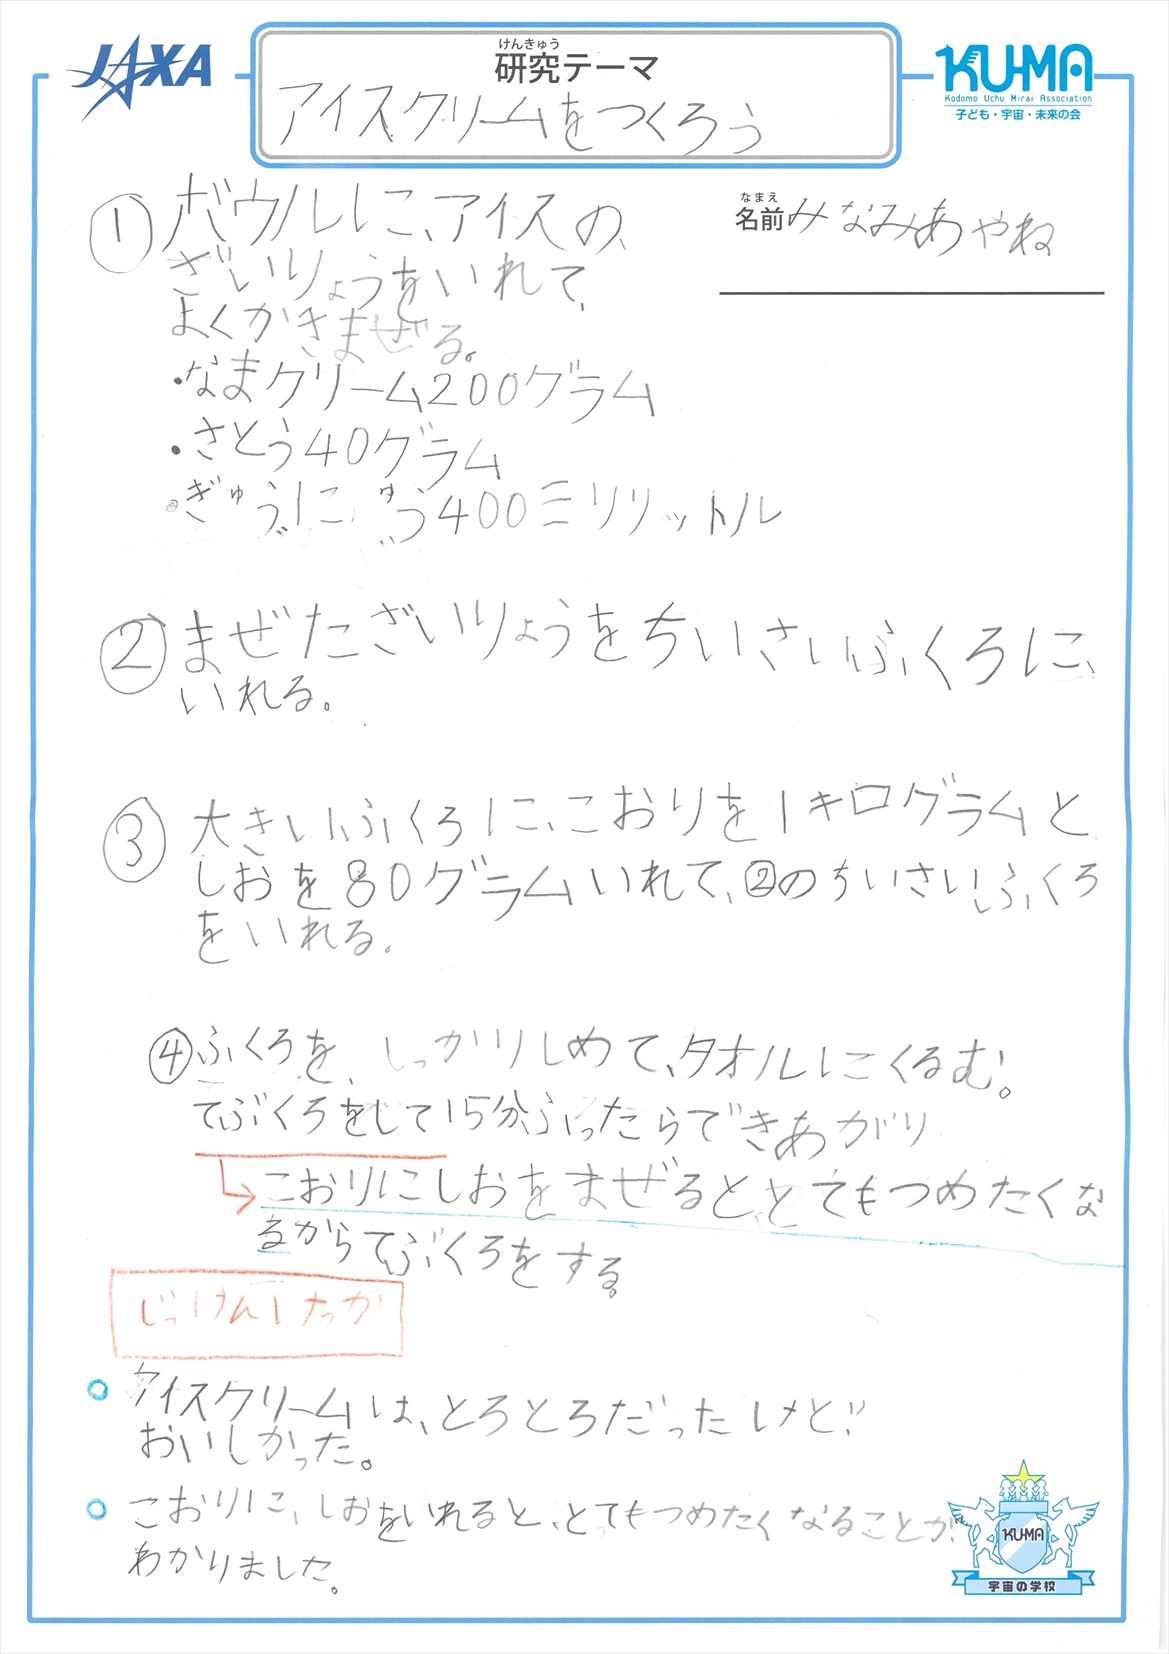 JAXA
けんきゅう
研究テーマ
アイスクリームをつくろう
KU-MA
Kodomo Uchu Mirai Association
子ども・宇宙・未来の会
なまえ
名前 みなみあやね
① ボウルに、アイスの、
ざいりょうをいれて、
よくかきまぜる。
・なまクリーム200グラム
・さとう40グラム
・ぎゅうにゅう400ミリリットル
② まぜたざいりょうをちいさいふくろに、
いれる。
③ 大きいふくろに、こおりを1キログラムと、
しおを80グラムいれて、②のちいさいふくろ
をいれる。
④ ふくろを、しっかりしめて、タオルにくるむ。
てぶくろをして15分ふったらできあがり
こおりにしおをまぜると、とてもつめたくな
るからてぶくろをする。
じっけんけっか
アイスクリームは、とろとろだったけど、
おいしかった。
こおりに、しおをいれると、とてもつめたくなることが
わかりました。
KU-MA
宇宙の学校